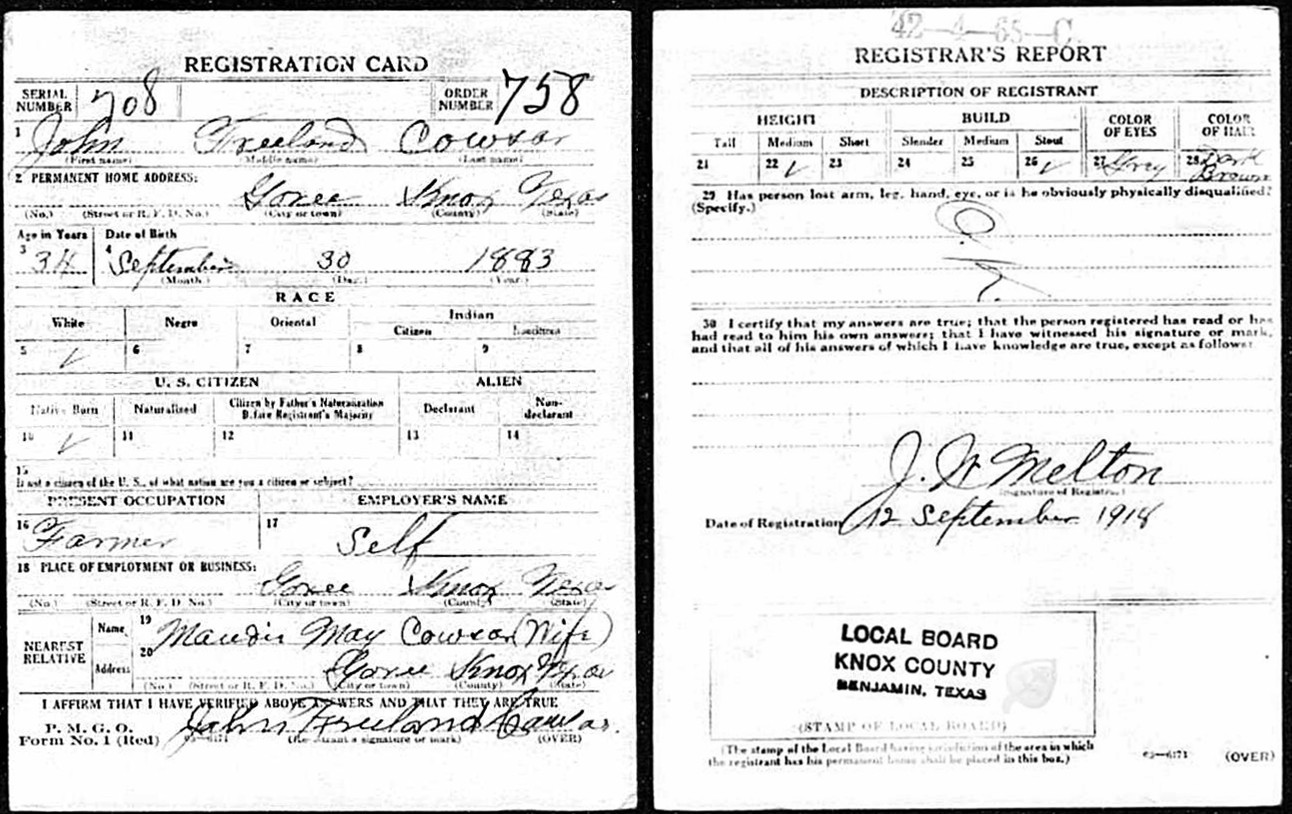 REGISTRATION CARD
SERIAL NUMBER 708 ORDER NUMBER 758
1 John Freeland Cowsar
(First name) (Middle name) (Last name)
2 PERMANENT HOME ADDRESS:
Goree Knox Texas
(No.) (Street or R. F. D. No.) (City or town) (County) (State)
Age in Years Date of Birth
3 34 4 September 30 1883
(Month.) (Day.) (Year.)
RACE
White Negro Oriental Indian
Citizen
5 ✓ 6 7 8 9
U. S. CITIZEN ALIEN
Native Born Naturalized Citizen by Father's Naturalization Before Registrant's Majority Declarant Non-declarant
10 ✓ 11 12 13 14
15
If not a citizen of the U. S., of what nation are you a citizen or subject?
PRESENT OCCUPATION EMPLOYER'S NAME
16 Farmer 17 Self
18 PLACE OF EMPLOYMENT OR BUSINESS:
Goree Knox Texas
(No.) (Street or R. F. D. No.) (City or town) (County) (State)
NEAREST RELATIVE Name 19 Maudie May Cowsar (Wife)
Address 20 Goree Knox Texas
(No.) (Street or R. F. D. No.) (City or town) (County) (State)
I AFFIRM THAT I HAVE VERIFIED ABOVE ANSWERS AND THAT THEY ARE TRUE
P. M. G. O.
Form No. 1 (Red) John Freeland Cowsar.
03—6171 (Registrant's signature or mark) (OVER)
42—4—65—C.
REGISTRAR'S REPORT
DESCRIPTION OF REGISTRANT
HEIGHT BUILD COLOR OF EYES COLOR OF HAIR
Tall Medium Short Slender Medium Stout
21 22 ✓ 23 24 25 26 ✓ 27 Grey 28 Dark Brown
29 Has person lost arm, leg, hand, eye, or is he obviously physically disqualified?
(Specify.)
30 I certify that my answers are true; that the person registered has read or has
had read to him his own answers; that I have witnessed his signature or mark,
and that all of his answers of which I have knowledge are true, except as follows:
J. W. Melton
(Signature of Registrar)
Date of Registration 12 September 1918
LOCAL BOARD
KNOX COUNTY
BENJAMIN, TEXAS
(STAMP OF LOCAL BOARD)
(The stamp of the Local Board having jurisdiction of the area in which
the registrant has his permanent home shall be placed in this box.)
03—6171 (OVER)